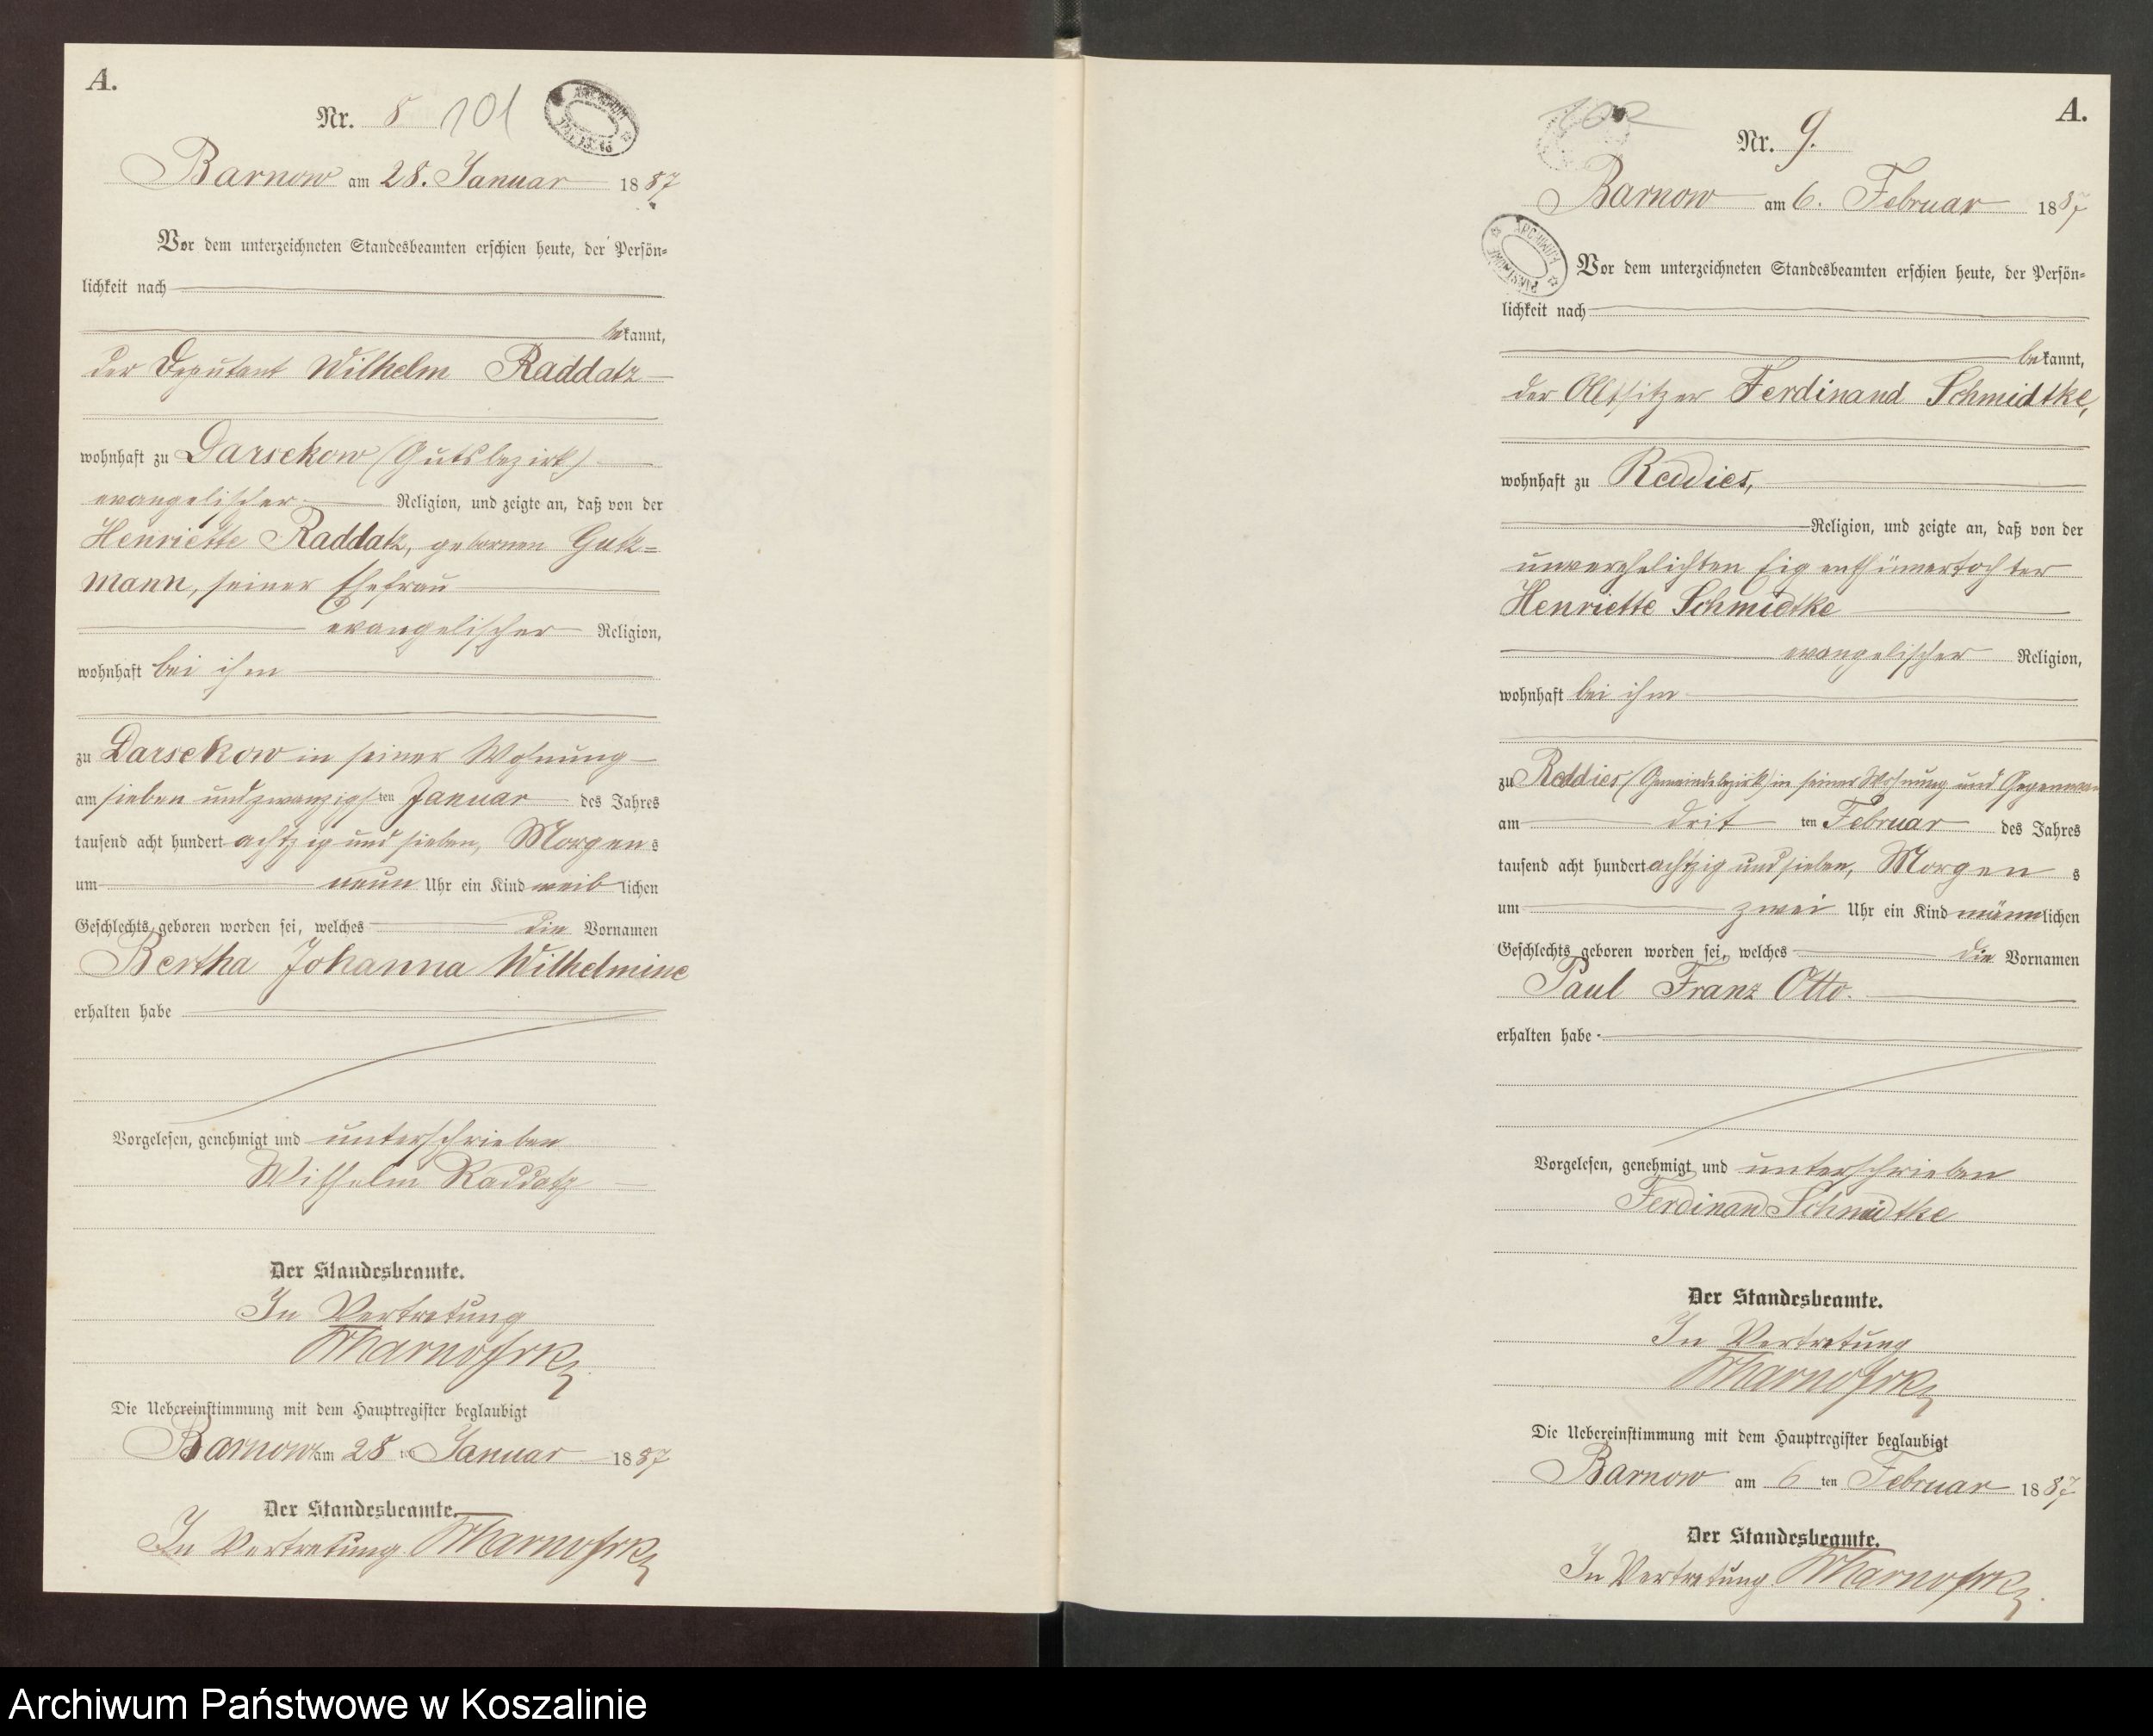 A.
Nr. 8 101
Barnow am 28. Januar 1887
Vor dem unterzeichneten Standesbeamten erschien heute, der Persön=
lichkeit nach
bekannt,
der Deputant Wilhelm Raddatz
wohnhaft zu Darsekow (Gutsbezirk)
evangelischer Religion, und zeigte an, daß von der
Henriette Raddatz, gebornen Gutz=
mann, seiner Ehefrau
evangelischer Religion,
wohnhaft bei ihm
zu Darsekow in seiner Wohnung
am sieben und zwanzigsten Januar des Jahres
tausend acht hundert achtzig und sieben, Morgens
um neun Uhr ein Kind weiblichen
Geschlechts geboren worden sei, welches die Vornamen
Bertha Johanna Wilhelmine
erhalten habe
Vorgelesen, genehmigt und unterschrieben
Wilhelm Raddatz
Der Standesbeamte.
In Vertretung
Die Uebereinstimmung mit dem Hauptregister beglaubigt
Barnow am 28 ten Januar 1887
Der Standesbeamte.
In Vertretung.
A.
102
Nr. 9.
Barnow am 6. Februar 1887
Vor dem unterzeichneten Standesbeamten erschien heute, der Persön=
lichkeit nach
bekannt,
der Altsitzer Ferdinand Schmidtke,
wohnhaft zu Reddies,
Religion, und zeigte an, daß von der
unverehelichten Eigenthümertochter
Henriette Schmidtke
evangelischer Religion,
wohnhaft bei ihm
zu Reddies (Gemeindebezirk) in seiner Wohnung und
am dritten Februar des Jahres
tausend acht hundert achtzig und sieben, Morgens
um zwei Uhr ein Kind männlichen
Geschlechts geboren worden sei, welches die Vornamen
Paul Franz Otto.
erhalten habe
Vorgelesen, genehmigt und unterschrieben
Ferdinand Schmidtke
Der Standesbeamte.
In Vertretung
Die Uebereinstimmung mit dem Hauptregister beglaubigt
Barnow am 6 ten Februar 1887
Der Standesbeamte.
In Vertretung.
Archiwum Państwowe w Koszalinie